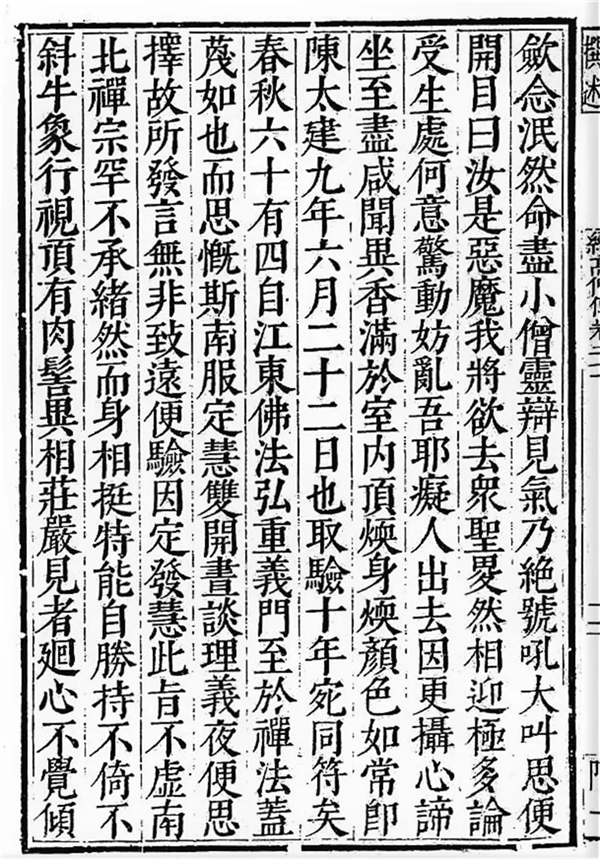 撰述
歛念泯然命盡小僧靈辯見氣乃絕號吼大叫思便
開目曰汝是惡魔我將欲去衆聖畟然相迎極多論
受生處何意驚動妨亂吾耶癡人出去因更攝心諦
坐至盡咸聞異香滿於室內頂煥身煥顏色如常卽
陳太建九年六月二十二日也取驗十年宛同符矣
春秋六十有四自江東佛法弘重義門至於禪法蓋
蔑如也而思慨斯南服定慧雙開晝談理義夜便思
擇故所發言無非致遠便驗因定發慧此旨不虛南
北禪宗罕不承緒然而身相挺特能自勝持不倚不
斜牛象行視頂有肉髻異相莊嚴見者廻心不覺傾